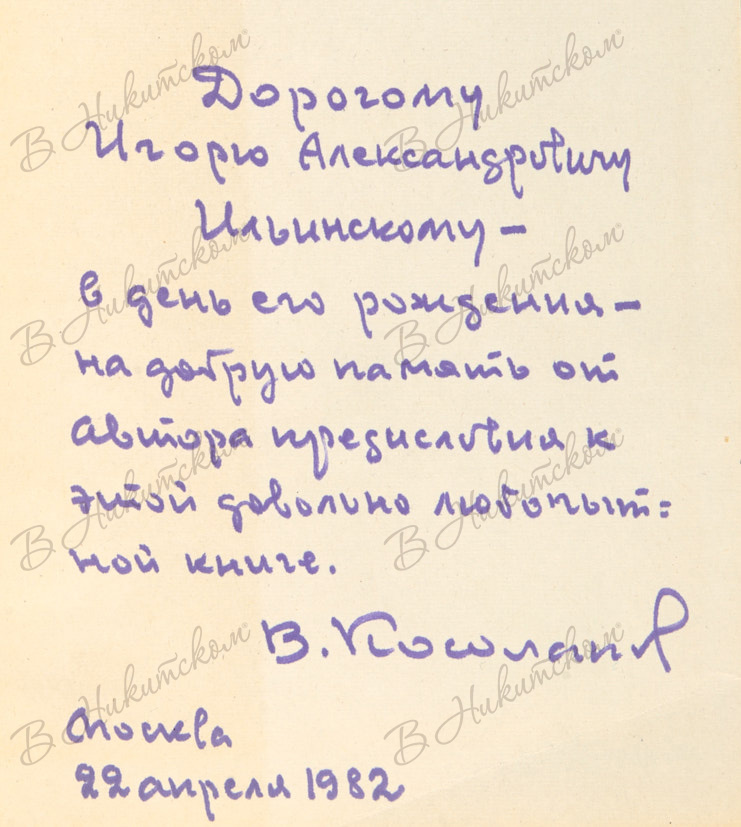 Дорогому
Игорю Александровичу
Ильинскому –
в день его рождения –
на добрую память от
автора предисловия к
этой довольно любопыт=
ной книге.
В.
Москва
22 апреля 1982
В Никитском
В Никитском
В Никитском
В Никитском
В Никитском
В Никитском
В Никитском
В Никитском